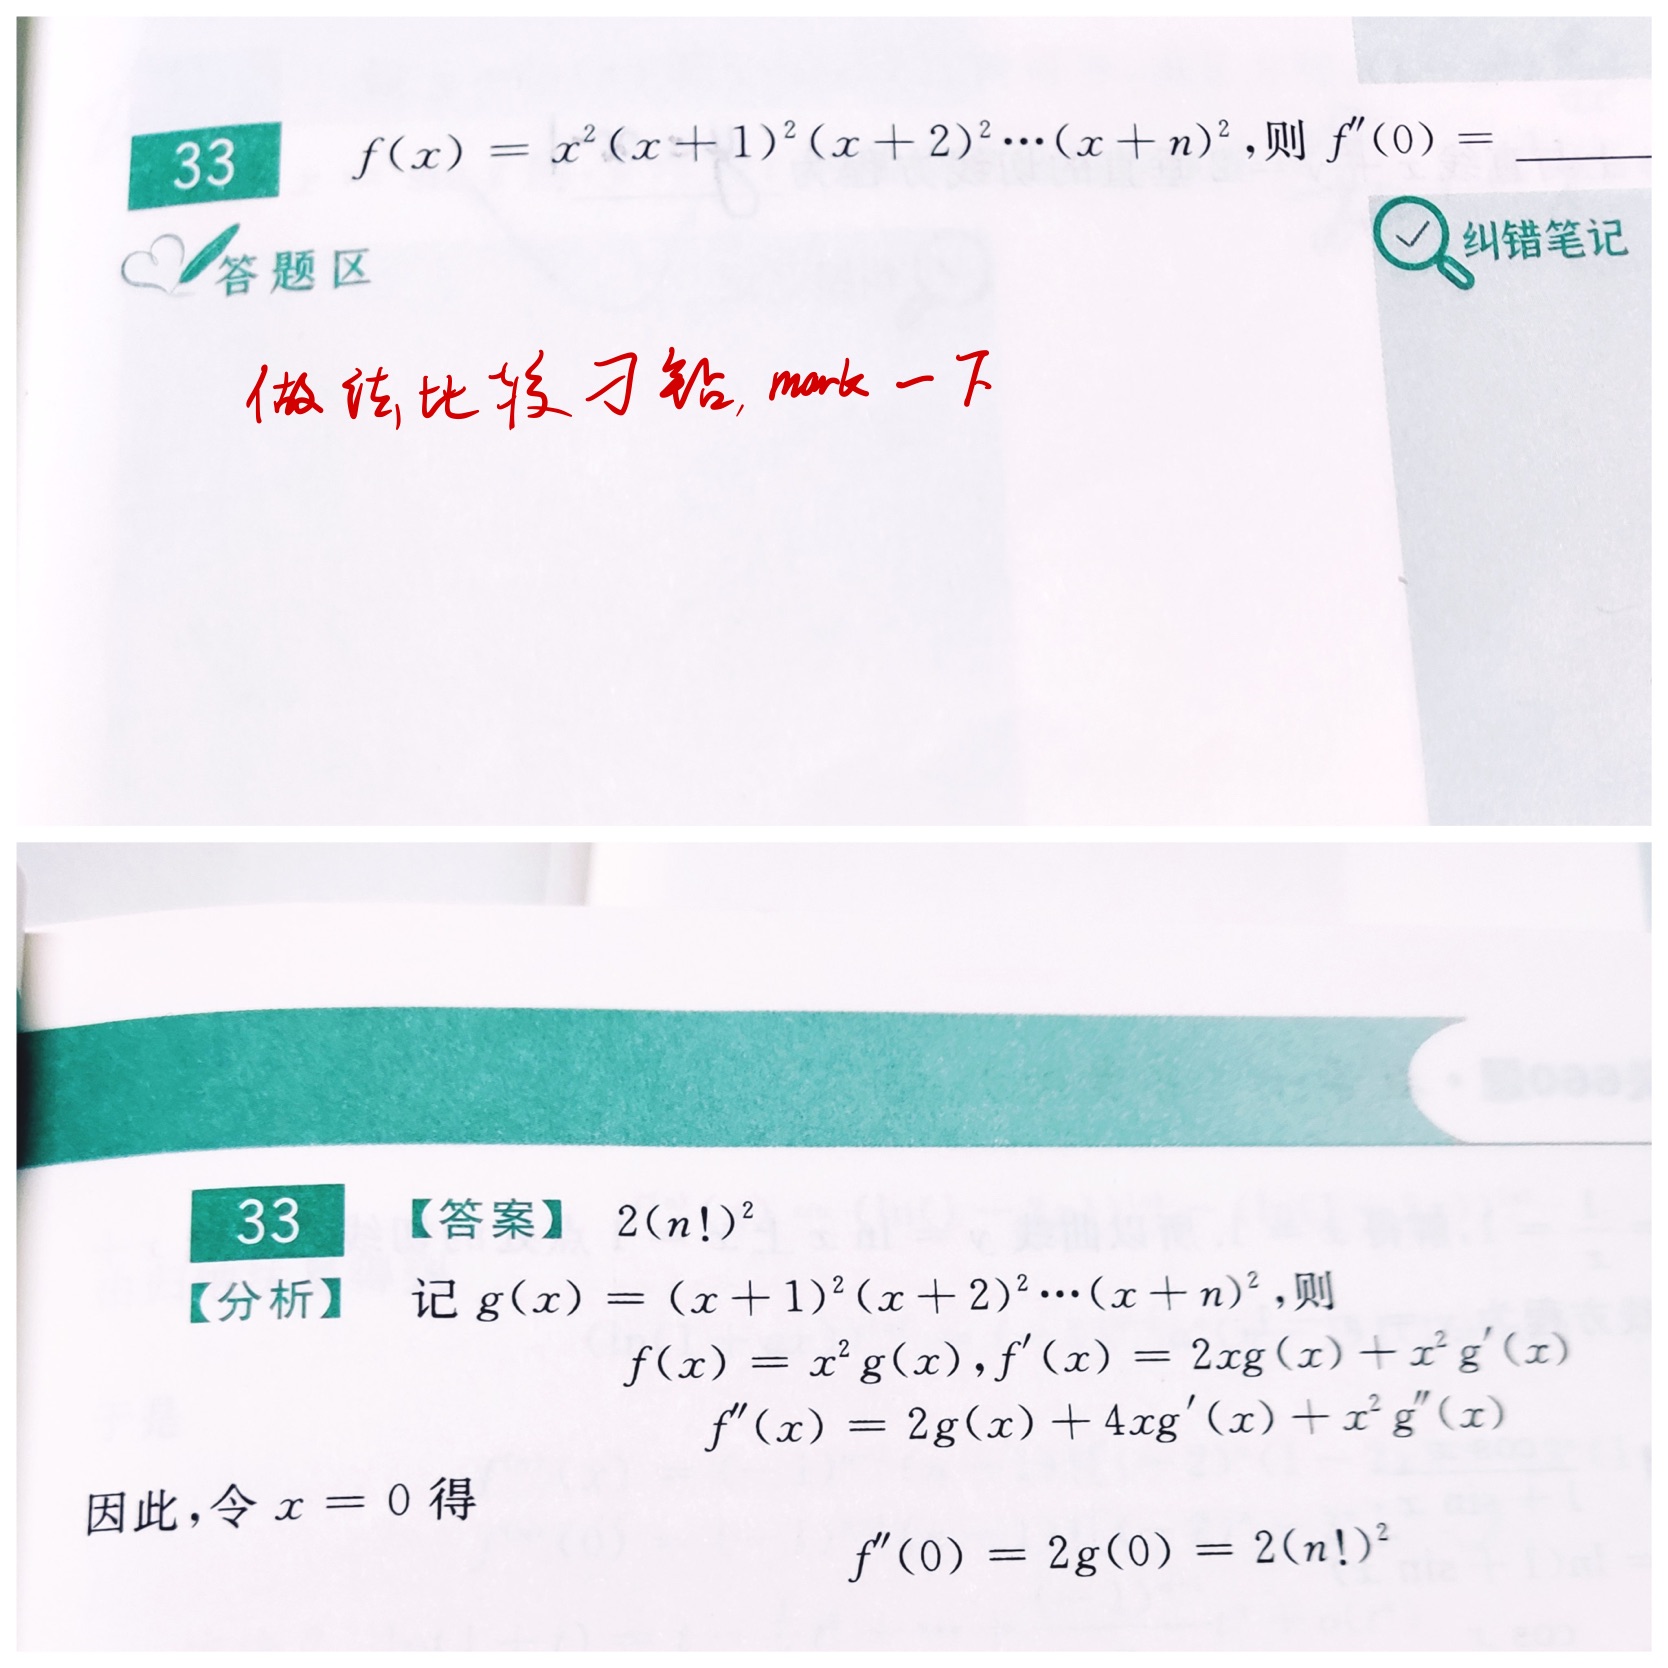 33 f(x) = x²(x+1)²(x+2)²⋯(x+n)²,则 f″(0) = ______
答题区
纠错笔记
做法比较刁钻, mark 一下
33 【答案】 2(n!)²
【分析】 记 g(x) = (x+1)²(x+2)²⋯(x+n)²,则
f(x) = x²g(x),f′(x) = 2xg(x)+x²g′(x)
f″(x) = 2g(x)+4xg′(x)+x²g″(x)
因此,令 x = 0 得
f″(0) = 2g(0) = 2(n!)²